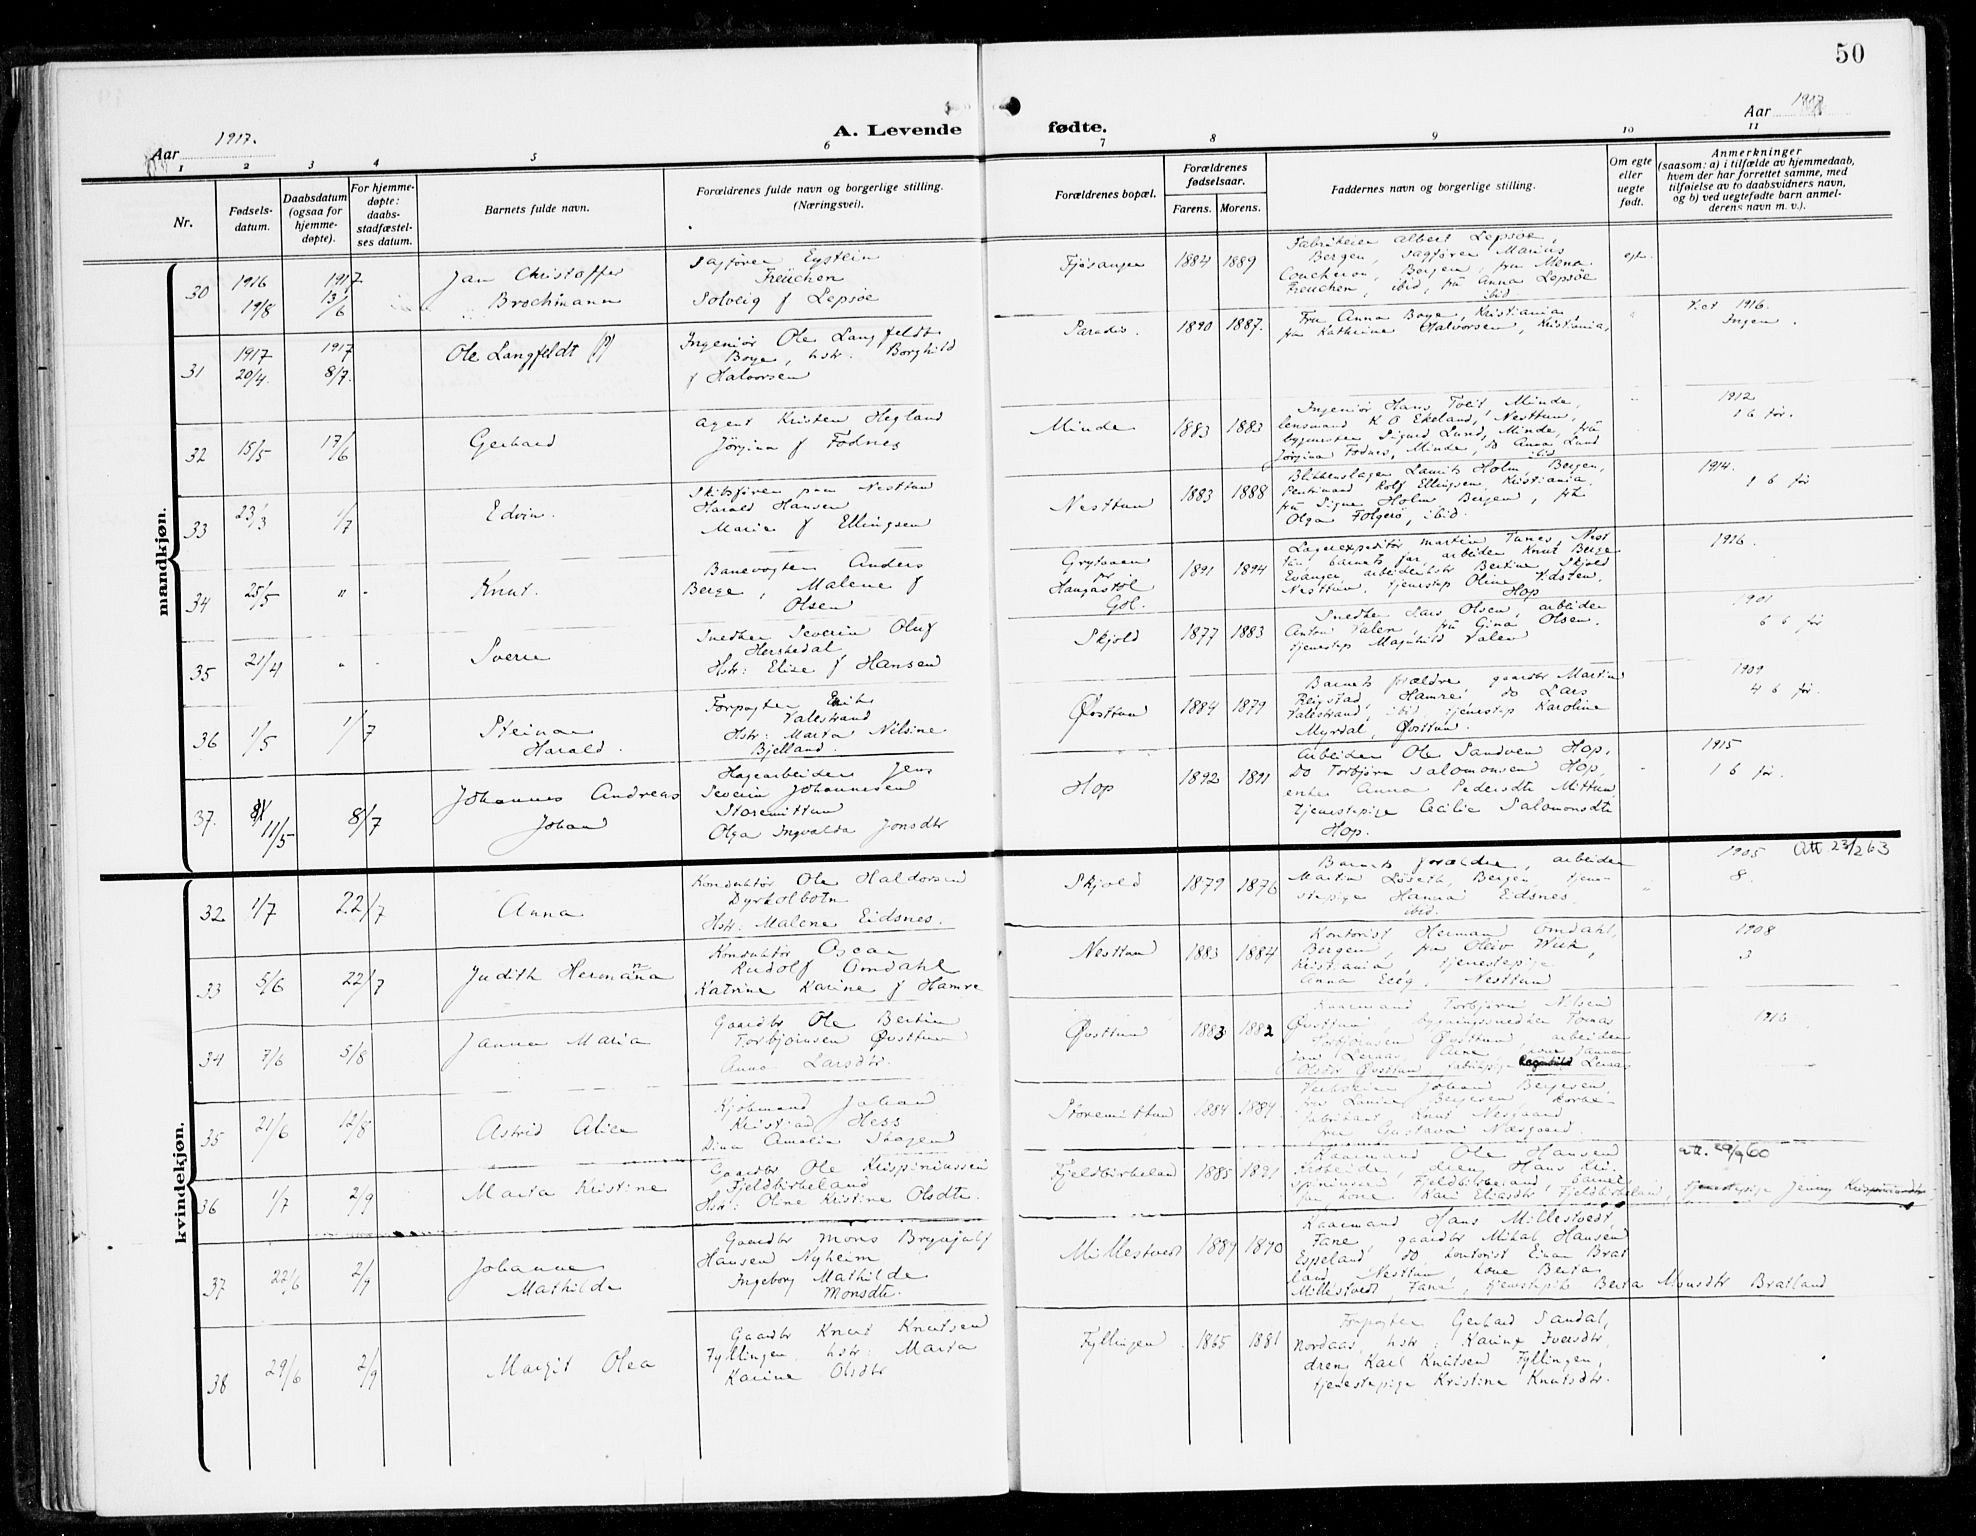 50
Aar 1917.
A. Levende fødte.
Aar 1917
1 2 3 4 5 6 7 8 9 10 11
Nr.
Fødsels-
datum.
Daabsdatum
(ogsaa for
hjemme-
døpte).
For hjemme-
døpte:
daabs-
stadfæstel-
ses datum.
Barnets fulde navn.
Forældrenes fulde navn og borgerlige stilling.
(Næringsvei).
Forældrenes bopæl.
Forældrenes
fødselsaar.
Farens. Morens.
Faddernes navn og borgerlige stilling.
Om egte
eller
uegte
født.
Anmerkninger
(saasom: a) i tilfælde av hjemmedaab,
hvem der har forrettet samme, med
tilføielse av to daabsvidners navn,
og b) ved uegtefødte barn anmel-
derens navn m. v.).
mandkjøn.
30
1916
19/8
1917
13/6
Jan Christoffer
Brochmann
Sagfører Eystein
Freuchen
Solveig f Lepsøe
Fjøsanger
1884 1889
Fabrikeier Albert Lepsøe,
Bergen, sagfører Marius
Coucheron, Bergen, fru Mena
Freuchen, ibid, fru Anna Lepsøe
ibid
egte.
31
1917
20/4.
1917
8/7.
Ole Langfeldt
Ingeniør Ole Langfeldt
Boye, hstr. Borghild
f Halvorsen
Paradis.
1890 1887.
Fru Anna Boye, Kristiania,
fru Kathrine Halvorsen, Kristiania,
1916.
Ingen.
32
15/5
17/6
Gerhard
Agent Kristen Hegland
Jørgina f Fodnes
Minde
1883 1883
Ingeniør Hans Tveit, Minde,
lensmand K O Ekeland, Nesttun,
bygmester Sigurd Lund, Minde, fru
Jørgina Fodnes, Minde, do Anna Lund
ibid
1912
1 6 før.
33
23/3
1/7
Edvin.
Skibsfører paa Nesttun
Harald Hansen
Marie f Ellingsen
Nesttun
1883 1888
Blikkenslager Lauritz Holm, Bergen,
Rolf Ellingsen, Kristiania.
fru Signe Holm Bergen, frk
Olga Folgerø, ibid.
1914.
1 6 før
34
25/5
" -
Knut.
Banevogter Anders
Berge, Malene f
Olsen
Haugastøl
Gol.
1891 1894
Lagerexpeditør Martin Tunes, Nest
tun, barnets far, arbeider Knut Berge
Evanger, arbeiderhstr Bertine Skjold
Nesttun, tjenestep Oline
Hop
1916.
35
21/4
" -
Sverre
Snedker Severin Oluf
Herskedal
Hstr: Elise f Hansen
Skjold
1877 1883
Snedker Lars Olsen, arbeider
Anton Valen, fru Gina Olsen.
tjenestep Magnhild Valen
1901
6 6 før
36
1/5
1/7
Steinar
Harald.
Forpagter Erik
Valestrand
Hstr: Marta Nilsine
Bjelland.
Øvsttun
1884 1879
Barnets forældre gaardbr Martin
Reigstad, Hamre, do Lars
Valestrand, ibid, tjenestep Karoline
Myrdal, Øvsttun.
1909
4 6 før.
37.
11/5
8/7
Johannes Andreas
Johan
Hagearbeider Jens
Severin Johannesen
Storemittun
Olga Ingvalda Jonsdtr
Hop
1892 1891
Arbeider Ole Sandven Hop,
Do Torbjørn Salomonsen Hop,
enke Anna Pedersdtr Mittun,
tjenestepige Cecilie Salomonsdtr
Hop.
1915
1 6 før.
kvindekjøn.
32
1/7
22/7
Anna
Konduktør Ole Haldorsen
Dyrkolbotn
Hstr: Malene Eidsnes.
Skjold
1879 1876
Barnets forældre, arbeider
Martin Løseth, Bergen, tjene-
stepige Hanna Eidsnes
ibid.
1905 Att. 23/2 63
8.
33
5/6
22/7
Judith Hermanna
Konduktør Oscar
Rudolf Omdahl
Katrine Karine f Hamre
Nesttun
1883 1884
Kontorist Herman Omdahl,
Bergen, fru Wiik,
Kristiania, tjenestepige
Anna Nesttun
1908
3
34
7/6
5/8
Janna Maria
Gaardbr Ole Bertin
Torbjørnsen Øvsttun
Anna Larsdtr.
Øvsttun
1883 1882
Kaarmand Torbjørn Nilsen
Øvsttun, bygningssnedker Tomas
Torbjørnsen Øvsttun, arbeider
Olsdtr Øvsttun, fabrikpige Leraas
1916
35
21/6
12/8
Astrid Alice
Kjøbmand Johan
Kristian Hess
Dina Amalia Skagen
Storemittun
1884 1884
Johan Bergesen,
fru Bergesen
fabrikant Knut Nesgaard
fru Gustava Næsgaard.
36
1/7
2/9
Marta Kristine
Gaardbr Ole Krispiniussen
Fjeldbirkeland
Hstr: Oline Kristine Olsdtr.
Fjeldbirkeland
1885 1891
Kaarmand Ole Hansen
dreng Hans Kri-
spiniusen Fjeldbirkeland, barnets
far, kone Kari Eliasdtr Fjeldbirkeland, tjenestepige Jenny Krispiniusdtr
att. 29/9 60
37
22/6
2/9
Johanne
Mathilde
Gaardbr Mons Brynjulf
Hansen Nyheim
Ingeborg Mathilde
Monsdtr.
Millestvedt
1889 1890
Kaarmand Hans Millestvedt,
Fane, gaardbr Mikal Hansen
Espeland, do kontorist Einar Brat
land, Nesttun, kone Berta
Millestvedt, Fane, tjenestepike Berta Monsdtr Bratland
38
29/6
2/9
Margit Olea
Gaardbr Knut Knutsen
Fyllingen, hstr: Marta
Karine Olsdtr
Fyllingen
1865 1881
Forpagter Gerhard Sandal,
Nordaas, hstr, Karine Iversdtr,
dreng Karl Knutsen Fyllingen,
tjenestepige Kristine Knutsdtr.